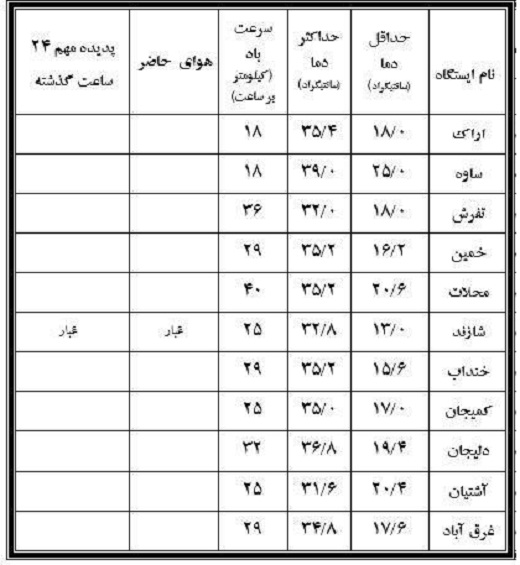 نام ایستگاه حداقل دما (سانتیگراد) حداکثر دما (سانتیگراد) سرعت باد (کیلومتر بر ساعت) هوای حاضر پدیده مهم ۲۴ ساعت گذشته
اراک ۱۸/۰ ۳۵/۴ ۱۸
ساوه ۲۵/۰ ۳۹/۰ ۱۸
تفرش ۱۸/۰ ۳۲/۰ ۳۶
خمین ۱۶/۲ ۳۵/۲ ۲۹
محلات ۲۰/۶ ۳۵/۲ ۴۰
شازند ۱۳/۰ ۳۲/۸ ۲۵ غبار غبار
خنداب ۱۵/۶ ۳۵/۲ ۲۹
کمیجان ۱۷/۰ ۳۵/۰ ۲۵
دلیجان ۱۹/۴ ۳۶/۸ ۳۲
آشتیان ۲۰/۴ ۳۱/۶ ۲۵
غرق آباد ۱۷/۶ ۳۴/۸ ۲۹